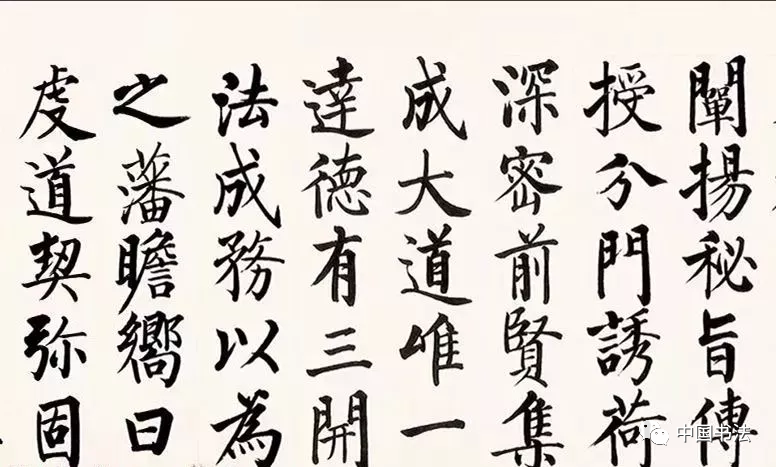 闡揚秘旨傳
授分門誘荷
深密前賢集
成大道唯一
達德有三開
法成務以為
之藩瞻嚮日
虔道契弥固
中国书法